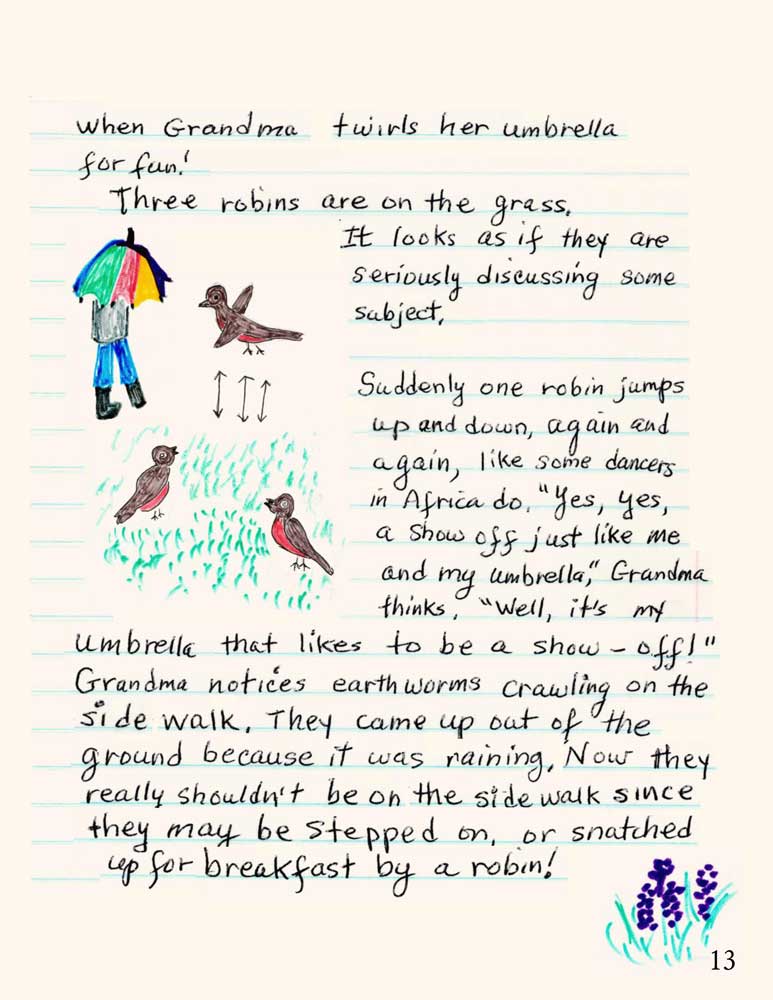 when Grandma twirls her umbrella
for fun!
Three robins are on the grass.
It looks as if they are
seriously discussing some
subject.
Suddenly one robin jumps
up and down, again and
again, like some dancers
in Africa do. "Yes, yes,
a show off just like me
and my umbrella," Grandma
thinks. "Well, it's my
umbrella that likes to be a show-off!"
Grandma notices earthworms crawling on the
side walk. They came up out of the
ground because it was raining. Now they
really shouldn't be on the side walk since
they may be stepped on, or snatched
up for breakfast by a robin!
13